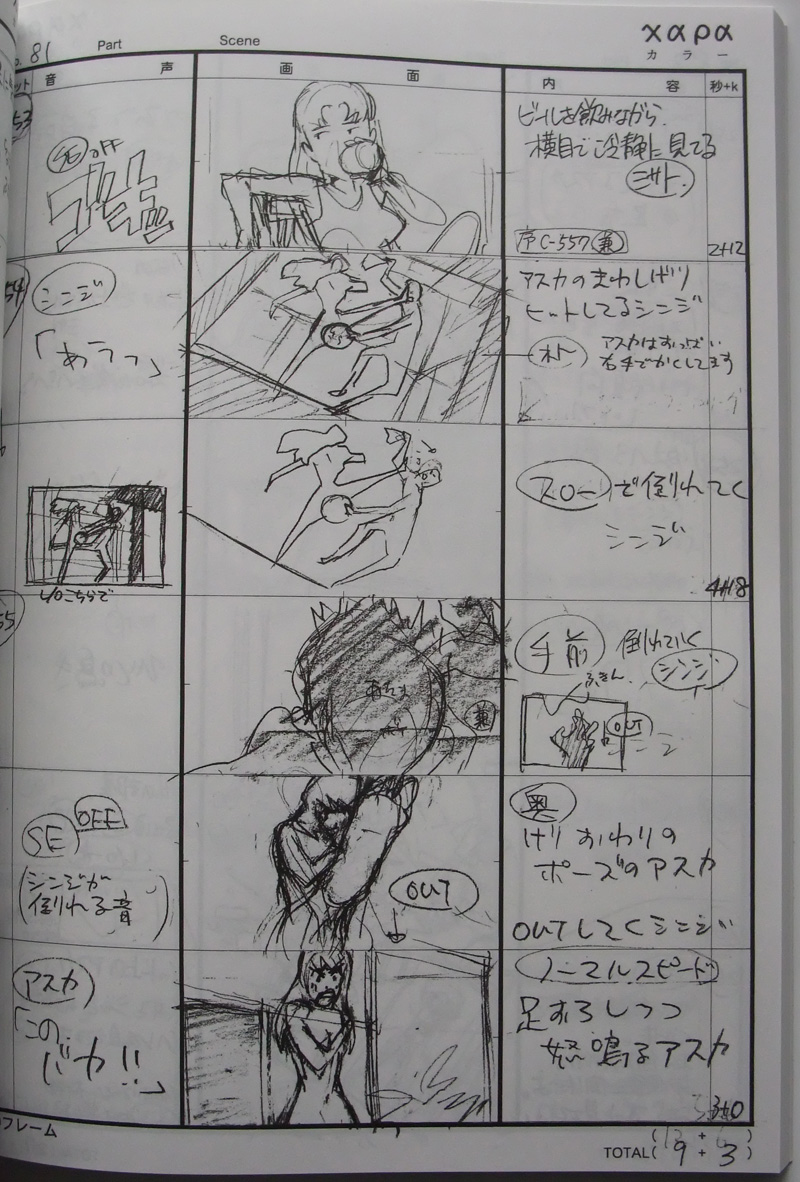 χαρα
カラー
81
Part
Scene
音 声
画 面
内 容
秒+k
53
OFF
ビールを飲みながら、
横目で冷静に見てる
ミサト.
序 C-557 兼
2+12
54
シンジ
「あうっ」
アスカのまわしげり
ヒットしてるシンジ
アスカはおっぱい
右手でかくしてます
スローで倒れてく
シンジ
4+18
55
手前 倒れていく
シンジ
OUT
シンジ
兼
SE OFF
(シンジが
倒れる音)
OUT
奥
けりおわりの
ポーズのアスカ
OUTしてくシンジ
アスカ
「この、
バカ!!」
ノーマルスピード
足おろしつつ
怒鳴るアスカ
3+0
フレーム
TOTAL( 9 + 3 )